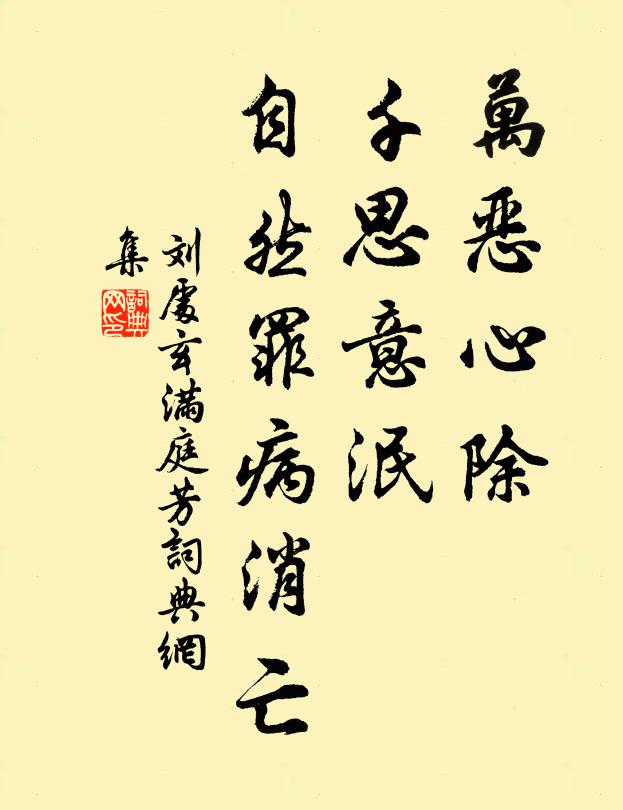 萬恶心除
千思意泯
自然罪病消亡
刘處玄满庭芳詞典網
集
詞典網印